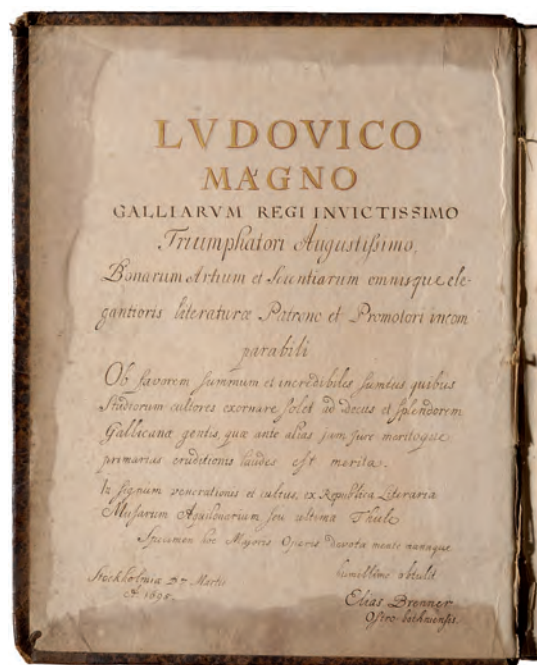 LVDOVICO
MAGNO
GALLIARVM REGI INVICTISSIMO
Triumphatori Augustißimo,
Bonarum Artium et Scientiarum omnisque ele-
gantioris literaturæ Patrono et Promotori incom
parabili
Ob favorem summum et incredibiles sumtus, quibus
Studiorum cultores exornare solet ad decus et splendorem
Gallicanæ gentis, quæ ante alias jam jure meritoque
primarias eruditionis laudes est merita.
In signum venerationis et cultus, ex Republica Literaria
Musarum Aquilonarium seu ultima Thule
Specimen hoc Majoris Operis devota mente manuque
humillime obtulit
Stockholmiæ D 7 Martii
A. 1695.
Elias Brenner
Ostro-bothniensis.